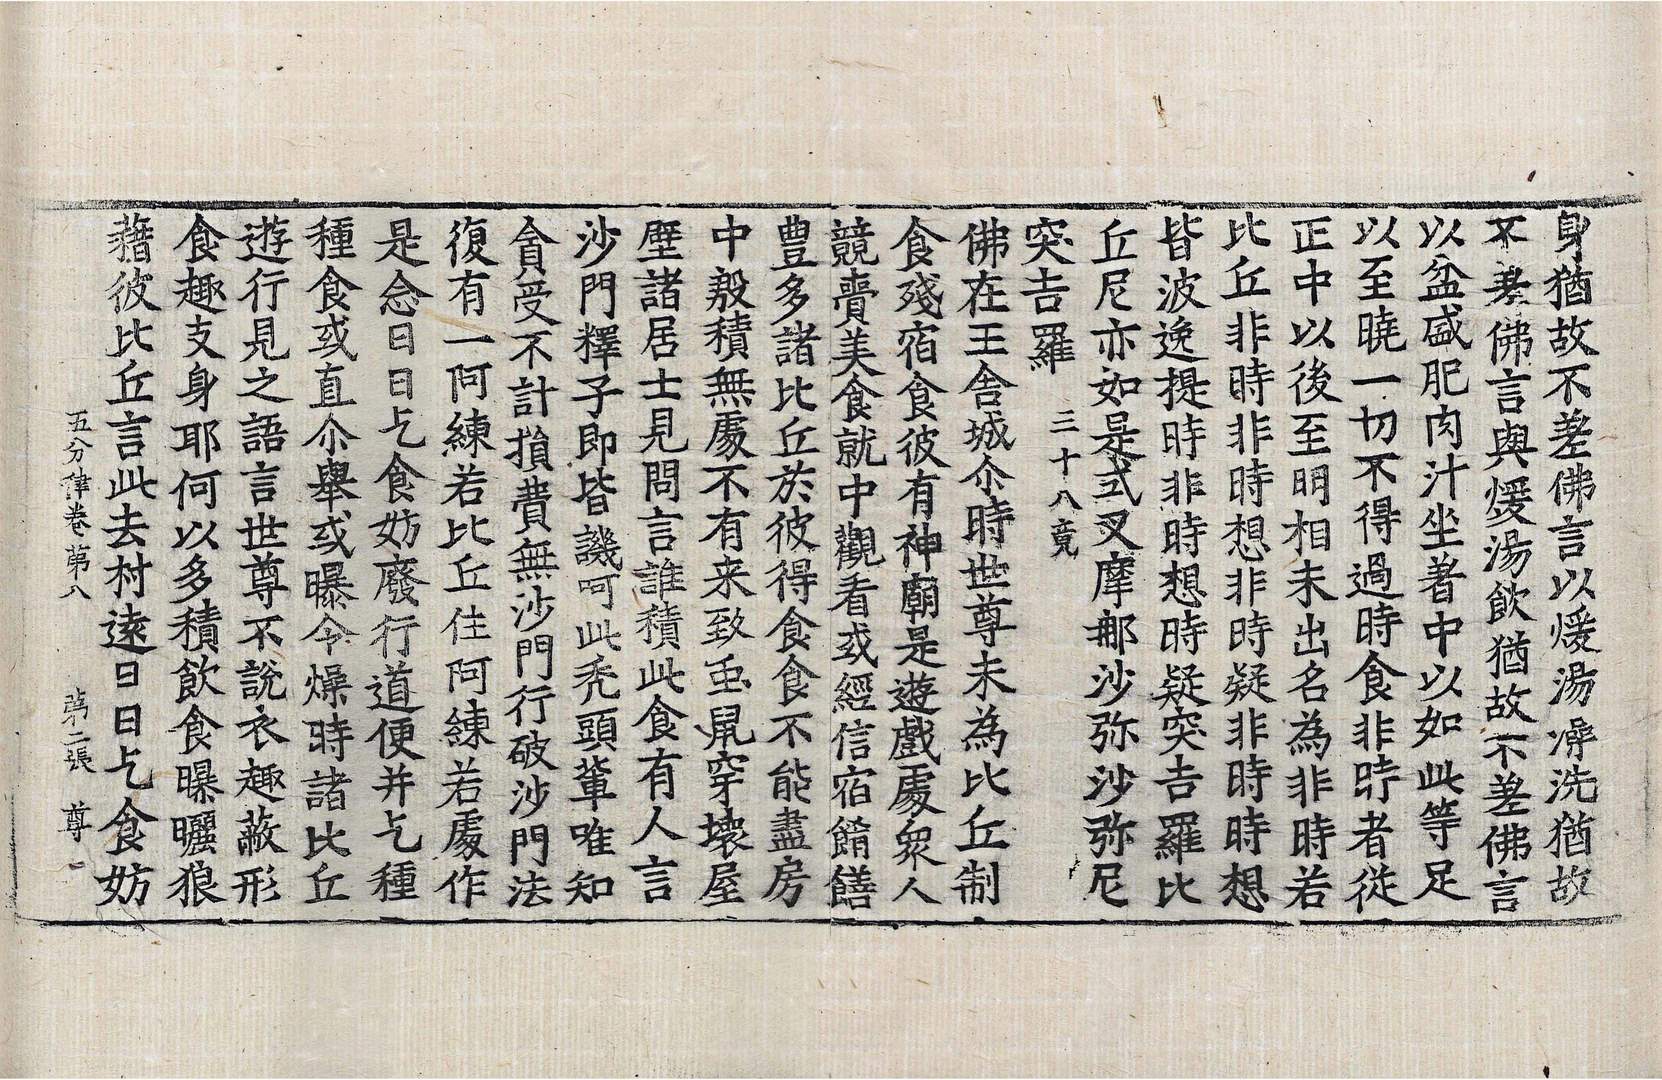 身猶故不差佛言以煖湯澡洗猶故
不差佛言與煖湯飲猶故不差佛言
以盆盛肥肉汁坐著中以如此等足
以至曉一切不得過時食非時者從
正中以後至明相未出名為非時若
比丘非時非時想非時疑非時時想
皆波逸提時非時想時疑突吉羅比
丘尼亦如是式叉摩那沙弥沙弥尼
突吉羅 三十八竟
佛在王舍城尒時世尊未為比丘制
食殘宿食彼有神廟是遊戲處衆人
競賷美食就中觀看或經信宿餚饍
豊多諸比丘於彼得食食不能盡房
中殽積無處不有来致䖝鼠穿壞屋
壁諸居士見問言誰積此食有人言
沙門釋子即皆譏呵此秃頭軰唯知
貪受不計損費無沙門行破沙門法
復有一阿練若比丘住阿練若處作
是念日日乞食妨廢行道便并乞種
種食或直尒舉或曝令燥時諸比丘
遊行見之語言世尊不說衣趣蔽形
食趣支身耶何以多積飲食曝曬狼
藉彼比丘言此去村遠日日乞食妨
五分律卷第八 第二張 尊